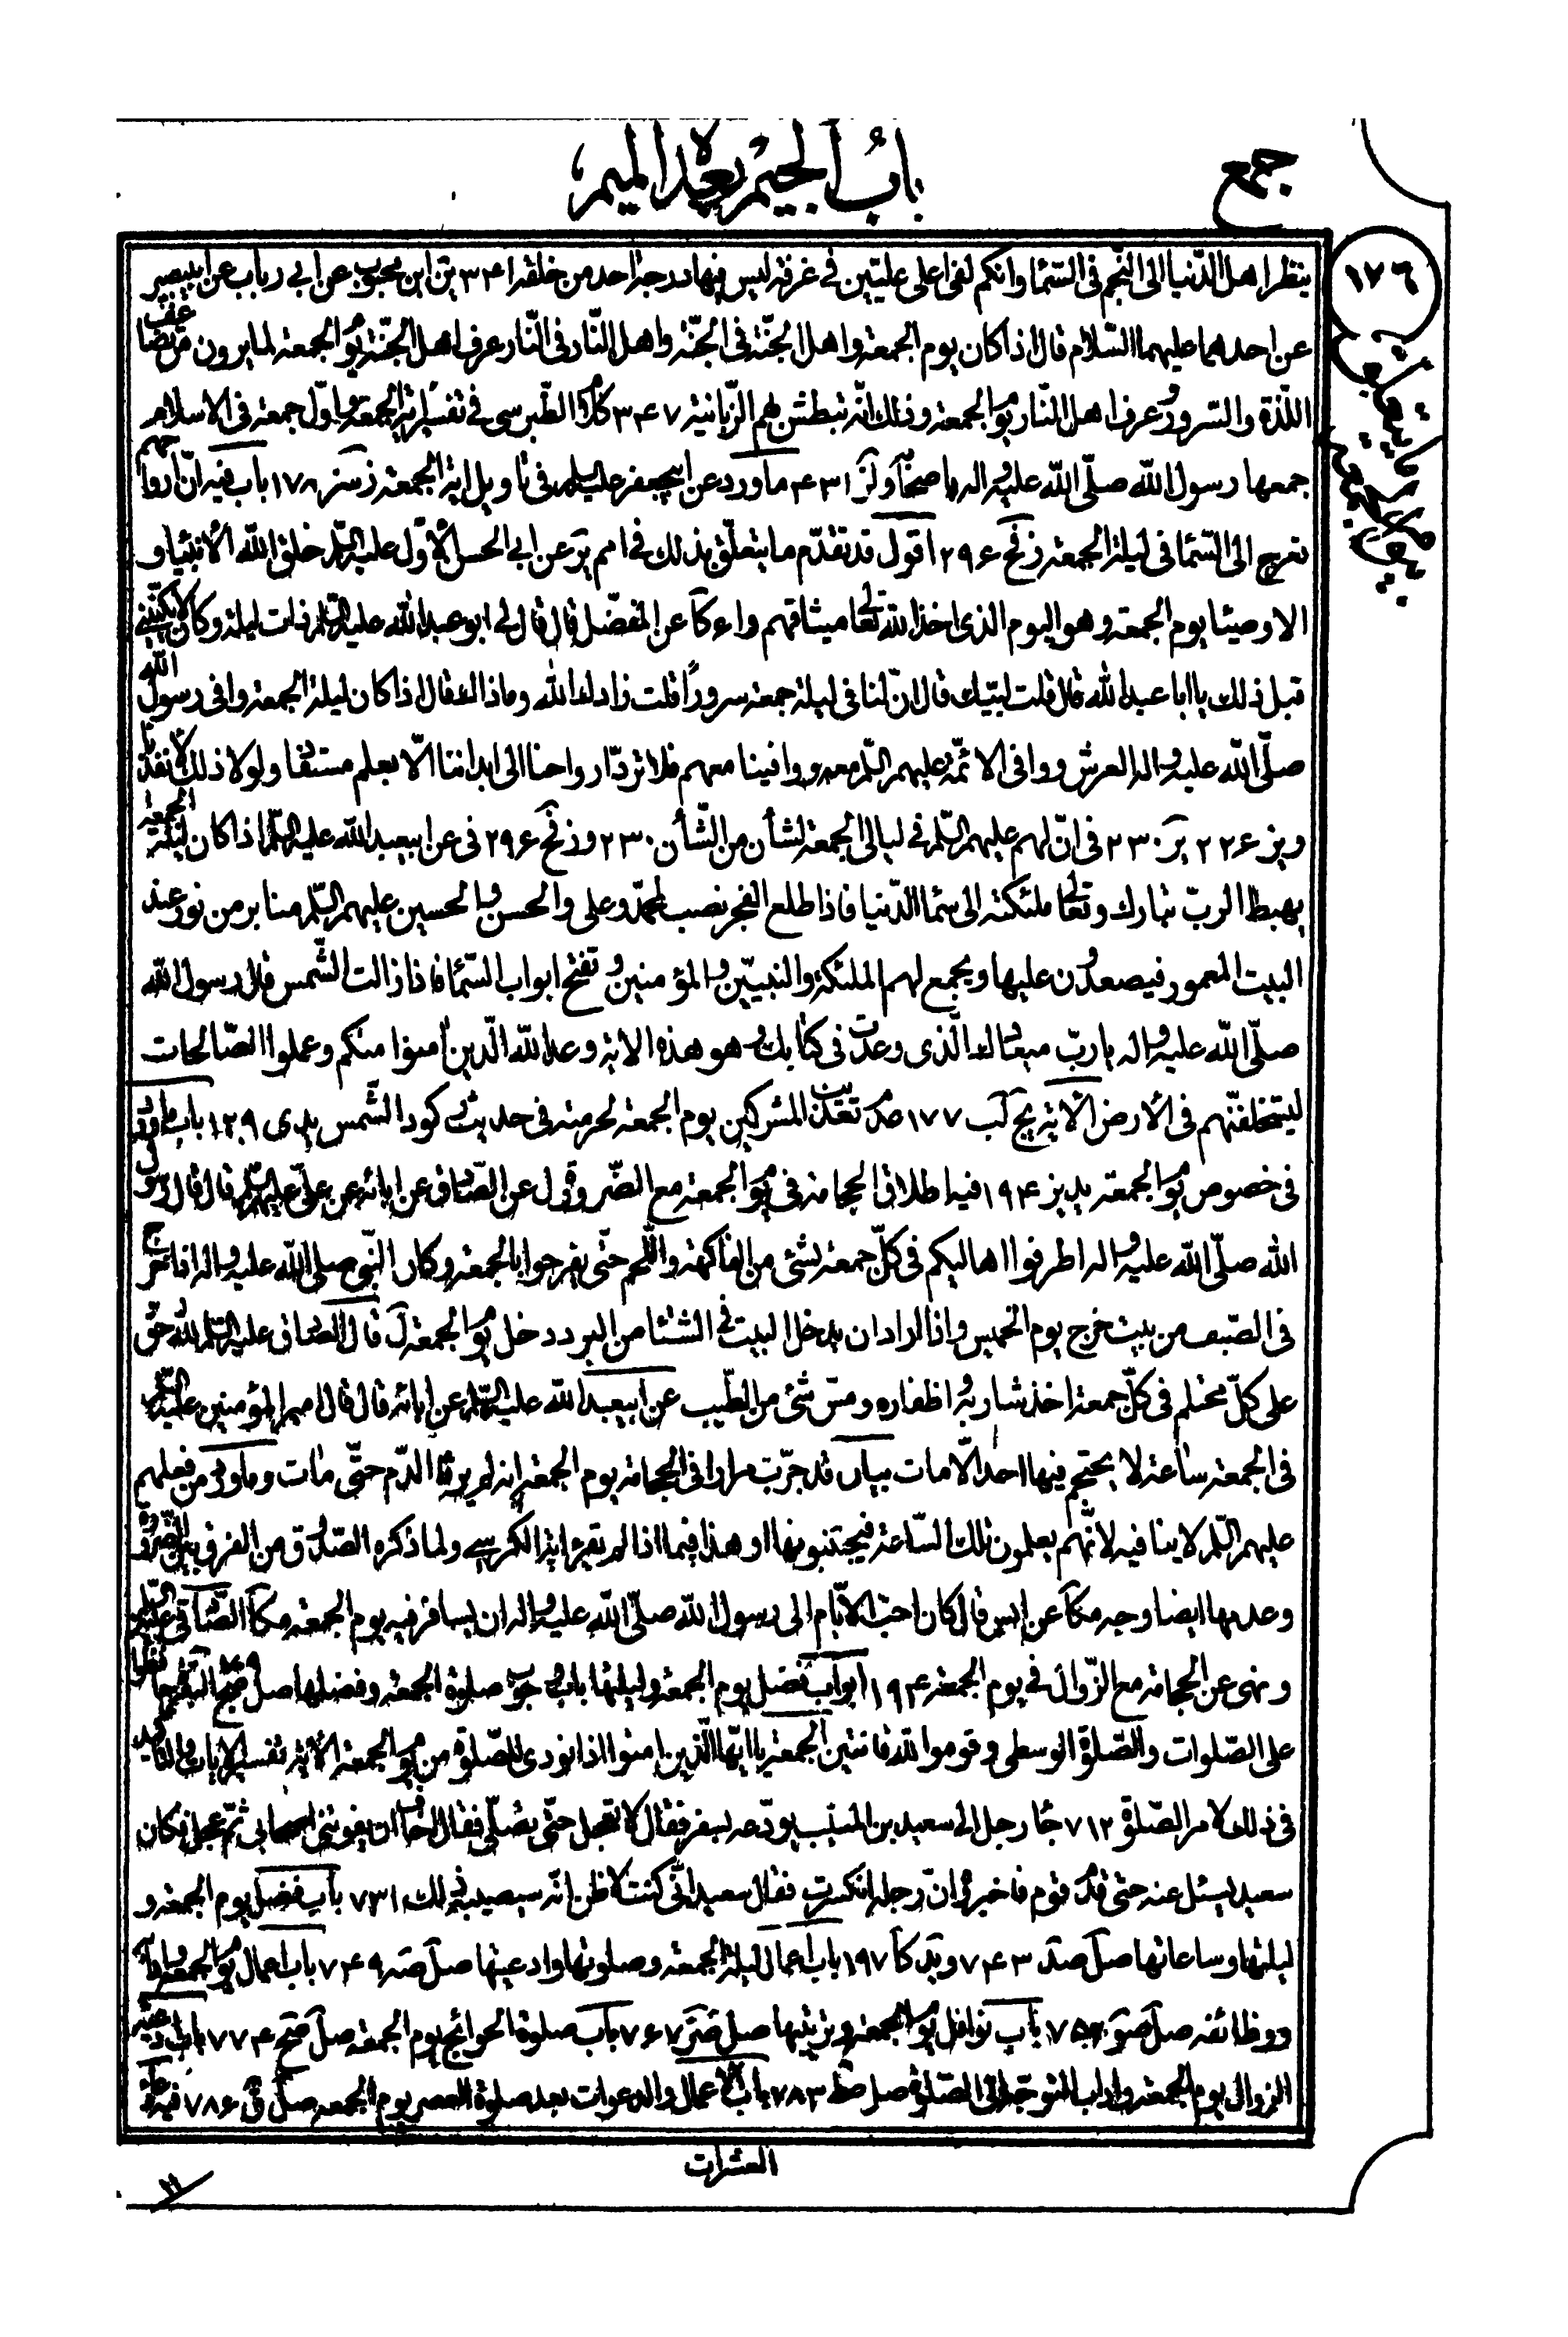 باب الجيم بعده الميم
جمع
١٧٦
ينظر اهل الدّنيا الى النجم فى السّماء وانكم لفى اعلى علّيّين فى غرفة ليس فيها درجة احد من خلقه ا ٣٣٤ ين ابن محبوب عن ابى رباب عن ابى بصير
عن احدهما عليهما السّلام قال اذا كان يوم الجمعة واهل الجنّة فى الجنّة واهل النّار فى النّار عرف اهل الجنّة يوم الجمعة لما يرون من تضاعف
اللّذة والسّرور وعرف اهل النّار يوم الجمعة وذلك انّه تبطش بهم الزّبانية ٣٤٧ كلام الطّبرسى فى تفسير اية الجمعة واول جمعة فى الاسلام
جمعها رسول الله صلّى الله عليه واله باصحابه ولز ٤٣١ ما ورد عن ابيجعفر عليه السلم فى تاويل اية الجمعة ز سز ١٧٨ باب فيه انّ ارواحهم
تعرج الى السّماء فى ليلة الجمعة ز فح ٢٩٦ اقول قد تقدّم ما يتعلق بذلك فى امم ير عن ابى الحسن الاوّل عليه السّلم خلق الله الانبياء و
الاوصياء يوم الجمعة وهو اليوم الذى اخذ الله تعالى ميثاقهم واء كا عن المفضّل قال قال لى ابو عبد الله عليه السّلم ذات ليلة وكان لا يكنّينى
قبل ذلك يا ابا عبد الله قال قلت لبّيك قال انّ لنا فى ليلة جمعة سرورًا قلت زادك الله وما ذاك قال اذا كان ليلة الجمعة وافى رسول الله
صلّى الله عليه واله العرش ووافى الائمّة عليهم السّلم معه ووافينا معهم فلا تردّ ارواحنا الى ابداننا الّا بعلم مستفاد ولولا ذلك لانفدنا
ويز ٢٢٦ ير ٢٣٠ فى انّ لهم عليهم السّلم فى ليالى الجمعة لشأن من الشّأن ٢٣٠ وز فح ٢٩٦ فى عن ابيعبد الله عليه السّلم اذا كان ليلة الجمعة
يهبط الربّ تبارك وتعالى ملئكته الى سماء الدّنيا فاذا طلع الفجر نصب لمحمّد وعلى والحسن والحسين عليهم السّلم منابر من نور عند
البيت المعمور فيصعدون عليها ويجمع لهم الملئكة والنبيّين والمؤمنين وتفتح ابواب السّماء فاذا زالت الشّمس قال رسول الله
صلّى الله عليه واله يا ربّ ميعادك الّذى وعدت فى كتابك وهو هذه الاية وعد الله الّذين امنوا منكم وعملوا الصّالحات
ليستخلفنّهم فى الارض الاية يج كب ١٧٧ تعذيب المشركين يوم الجمعة لحرمته فى حديث ركود الشّمس يد ى ١٢٩ باب ما ورد
فى خصوص يوم الجمعة يد يز ١٩٤ فيه اطلاق الحجامة فى يوم الجمعة مع الضّرورة ل عن الصّادق عن ابائه عن علىّ عليهم السّلم قال قال رسول
الله صلّى الله عليه واله اطرفوا اهاليكم فى كلّ جمعة بشئ من الفاكهة واللّحم حتّى يفرحوا بالجمعة وكان النّبى صلى الله عليه واله اذا خرج
فى الصّيف من بيت خرج يوم الخميس واذا اراد ان يدخل البيت فى الشتاء من البرد دخل يوم الجمعة ل قال الصّادق عليه السّلم لله حق
على كلّ محتلم فى كلّ جمعة اخذ شاربه واظفاره ومسّ شئ من الطّيب عن ابيعبد الله عليه السّلم عن ابائه قال قال امير المؤمنين عليه السّلم
فى الجمعة ساعة لا يحتجم فيها احد الّا مات بيان قد جرّب مرارا فى الحجامة يوم الجمعة انه لم يرقا الدّم حتّى مات وما ورد من فعلهم
عليهم السّلم لا ينافيه لانّهم يعلمون تلك السّاعة فيجتنبونها او هذا فيما اذا لم تقرء اية الكرسى ولما ذكره الصّدوق من الفرق بين الضّرورة
وعدمها ايضا وجه مكا عن انس قال كان احبّ الايّام الى رسول الله صلّى الله عليه واله ان يسافر فيه يوم الجمعة مكا الصّادق عليه السّلم
ونهى عن الحجامة مع الزّوال فى يوم الجمعة ١٩٤ ابواب فضل يوم الجمعة وليلتها باب وجوب صلوة الجمعة وفضلها صل البقرة حافظوا
على الصّلوات والصّلوة الوسطى وقوموا لله قانتين الجمعة يا ايّها الّذين امنوا اذا نودى للصّلوة من يوم الجمعة الاية تفسير الايات والتاكيد
فى ذلك لامر الصّلوة ٧١٢ جاء رجل الى سعيد بن المسيّب يودّعه لسفر فقال لا تعجل حتّى تصلّى فقال اخاف ان يفوتنى اصحابى ثمّ عجل فكان
سعيد يسئل عنه حتى قدم قوم فاخبروه انّ رجله انكسرت فقال سعيد انّى كنت لاظن انّه سيصيبه ذلك ٧٣١ باب فضل يوم الجمعة و
ليلتها وساعاتها صل صد ٧٤٣ ويد كا ١٩٧ باب اعمال ليلة الجمعة وصلوتها وادعيتها صل صه ٧٤٩ باب اعمال يوم الجمعة وادابه
ووظائفه صل صو ٧٥٢ باب نوافل يوم الجمعة وترتيبها صل صز ٧٦٧ باب صلوة الحوائج يوم الجمعة صل صح ٧٧٤ باب ادعية
الزوال يوم الجمعة واداب التوجّه الى الصّلوة صل صط ٧٨٣ باب الاعمال والدعوات بعد صلوة العصر يوم الجمعة صل ق ٧٨٦ فيه دعاء
العشرات